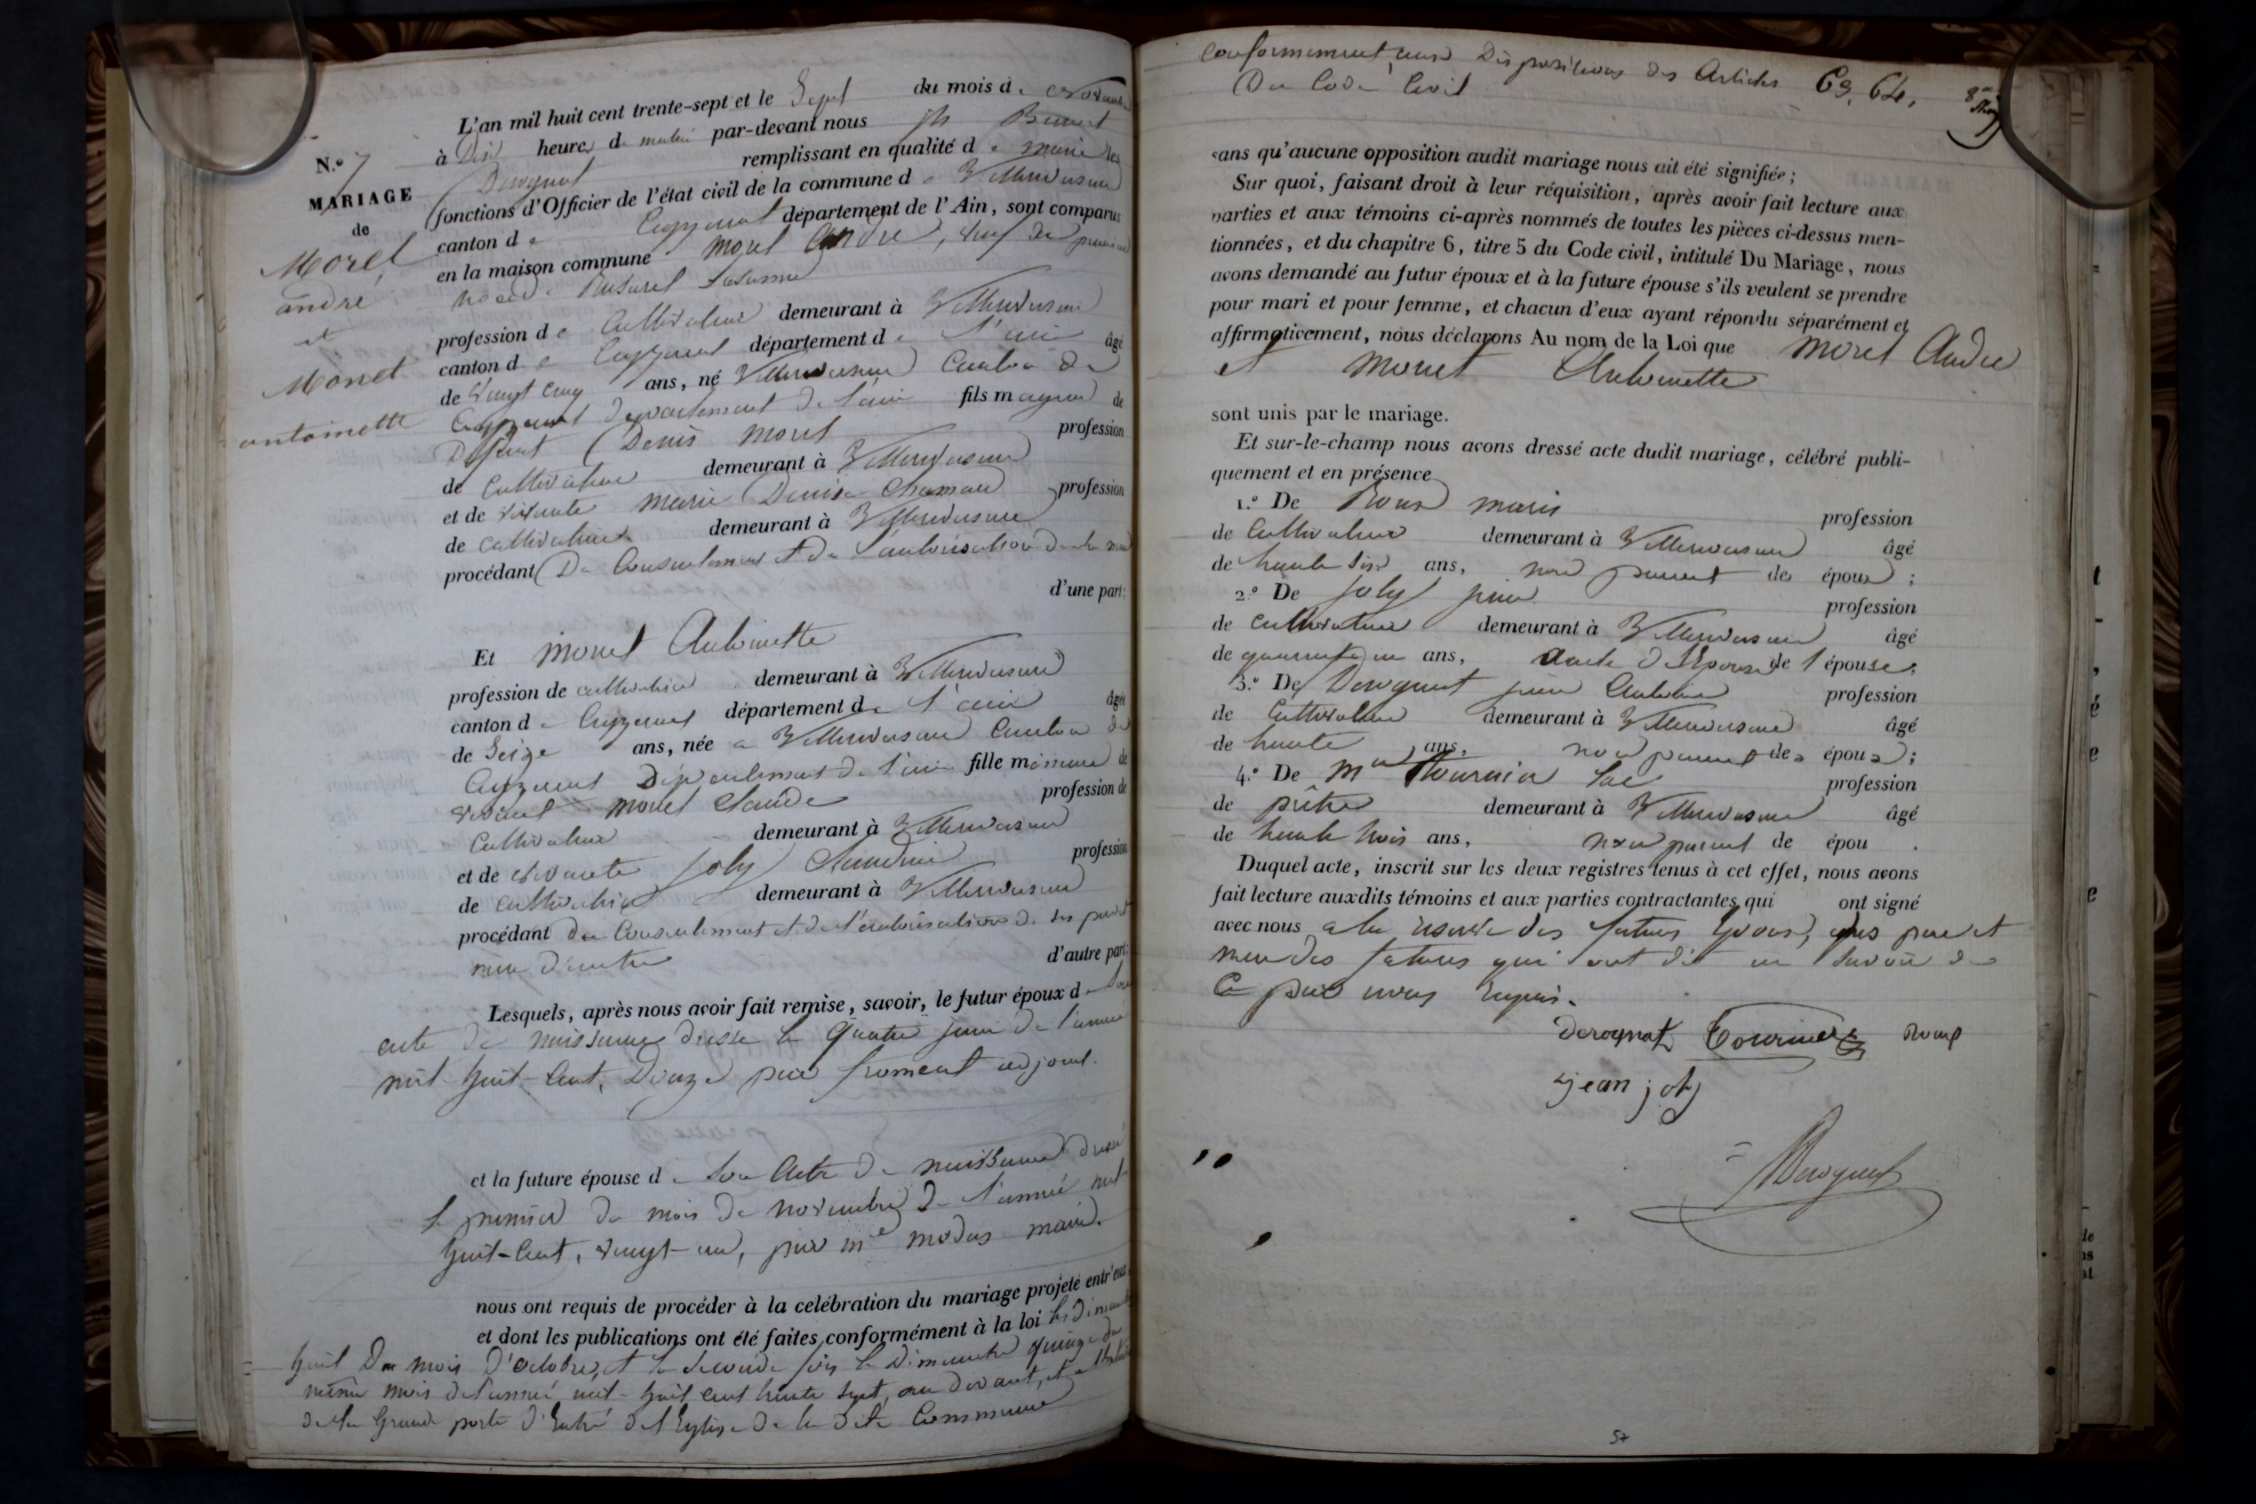 L'an mil huit cent trente-sept et le Sept du mois de novembre
N.o 7
à Dix heures du matin par-devant nous jh Benoit
Derognat remplissant en qualité de maire les
MARIAGE
fonctions d'Officier de l'état civil de la commune de Villereversure
de
canton de Ceyzeriat département de l'Ain, sont comparus
Morel
en la maison commune Morel André, veuf en premier
andré
profession de Cultivateur demeurant à Villereversure
et
canton de Ceyzeriat département de l'ain âgé
Monet
de vingt cinq ans, né Villereversure Canton de
antoinette
Ceyzeriat département de l'ain fils mageur de
Défunt Denis Morel profession
de Cultivateur demeurant à Villereversure
et de vivante Marie Denise profession
de cultivatrice demeurant à Villereversure
procédant Du Consentement et de l'autorisation de la
d'une part:
Et Monet Antoinette
profession de cultivatrice demeurant à Villereversure
canton de Ceyzeriat département de l'ain âgée
de Seize ans, née a Villereversure Canton de
Ceyzeriat Département de l'ain fille mineure de
vivant Monet Claude profession de
Cultivateur demeurant à Villereversure
et de vivante Joly Claudine profession
de cultivatrice demeurant à Villereversure
procédant du Consentement et de l'autorisation de ses père et
mère d'autre part:
Lesquels, après nous avoir fait remise, savoir, le futur époux de Son
acte de naissance dressé le quatre juin de l'année
mil-huit-Cent, Douze par froment adjoint.
et la future épouse de Son Acte de naissance dressé
le premier du mois de novembre de l'année mil
huit-Cent, vingt-un, par mre modas maire.
nous ont requis de procéder à la celébration du mariage projeté entr'eux
et dont les publications ont été faites, conformément à la loi les Dimanche
huit Du mois D'octobre, et la seconde fois le Dimanche quinze du
même mois de l'année mil-huit cent trente sept, au devant, et a
de la Grande porte d'Entré de l'Eglise de la dite Commune
Conformément, aux Dispositions des Articles 63, 64,
Du Code Civil
sans qu'aucune opposition audit mariage nous ait été signifiée;
Sur quoi, faisant droit à leur réquisition, après avoir fait lecture aux
parties et aux témoins ci-après nommés de toutes les pièces ci-dessus men-
tionnées, et du chapitre 6, titre 5 du Code civil, intitulé Du Mariage, nous
avons demandé au futur époux et à la future épouse s'ils veulent se prendre
pour mari et pour femme, et chacun d'eux ayant répondu séparément et
affirmativement, nous déclarons Au nom de la Loi que Morel Andre
et Monet Antoinette
sont unis par le mariage.
Et sur-le-champ nous avons dressé acte dudit mariage, célébré publi-
quement et en présence
1.o De Roux maris profession
de Cultivateur demeurant à Villereversure âgé
de trente Six ans, non parent des époux;
2.o De Joly profession
de cultivateur demeurant à Villereversure âgé
de ans, de l'épouse;
3.o De Derognat Antoine profession
de Cultivateur demeurant à Villereversure âgé
de trente ans, non parent des époux;
4.o De Mre Tournier profession
de prêtre demeurant à Villereversure âgé
de trente trois ans, non parent de épou .
Duquel acte, inscrit sur les deux registres tenus à cet effet, nous avons
fait lecture auxdits témoins et aux parties contractantes qui ont signé
avec nous a la réserve des futurs époux, des père et
mère des futurs qui ont dit ne Savoir de
Ce par nous requis.
derognat Tournier Roux
jean joly
Derognat
57